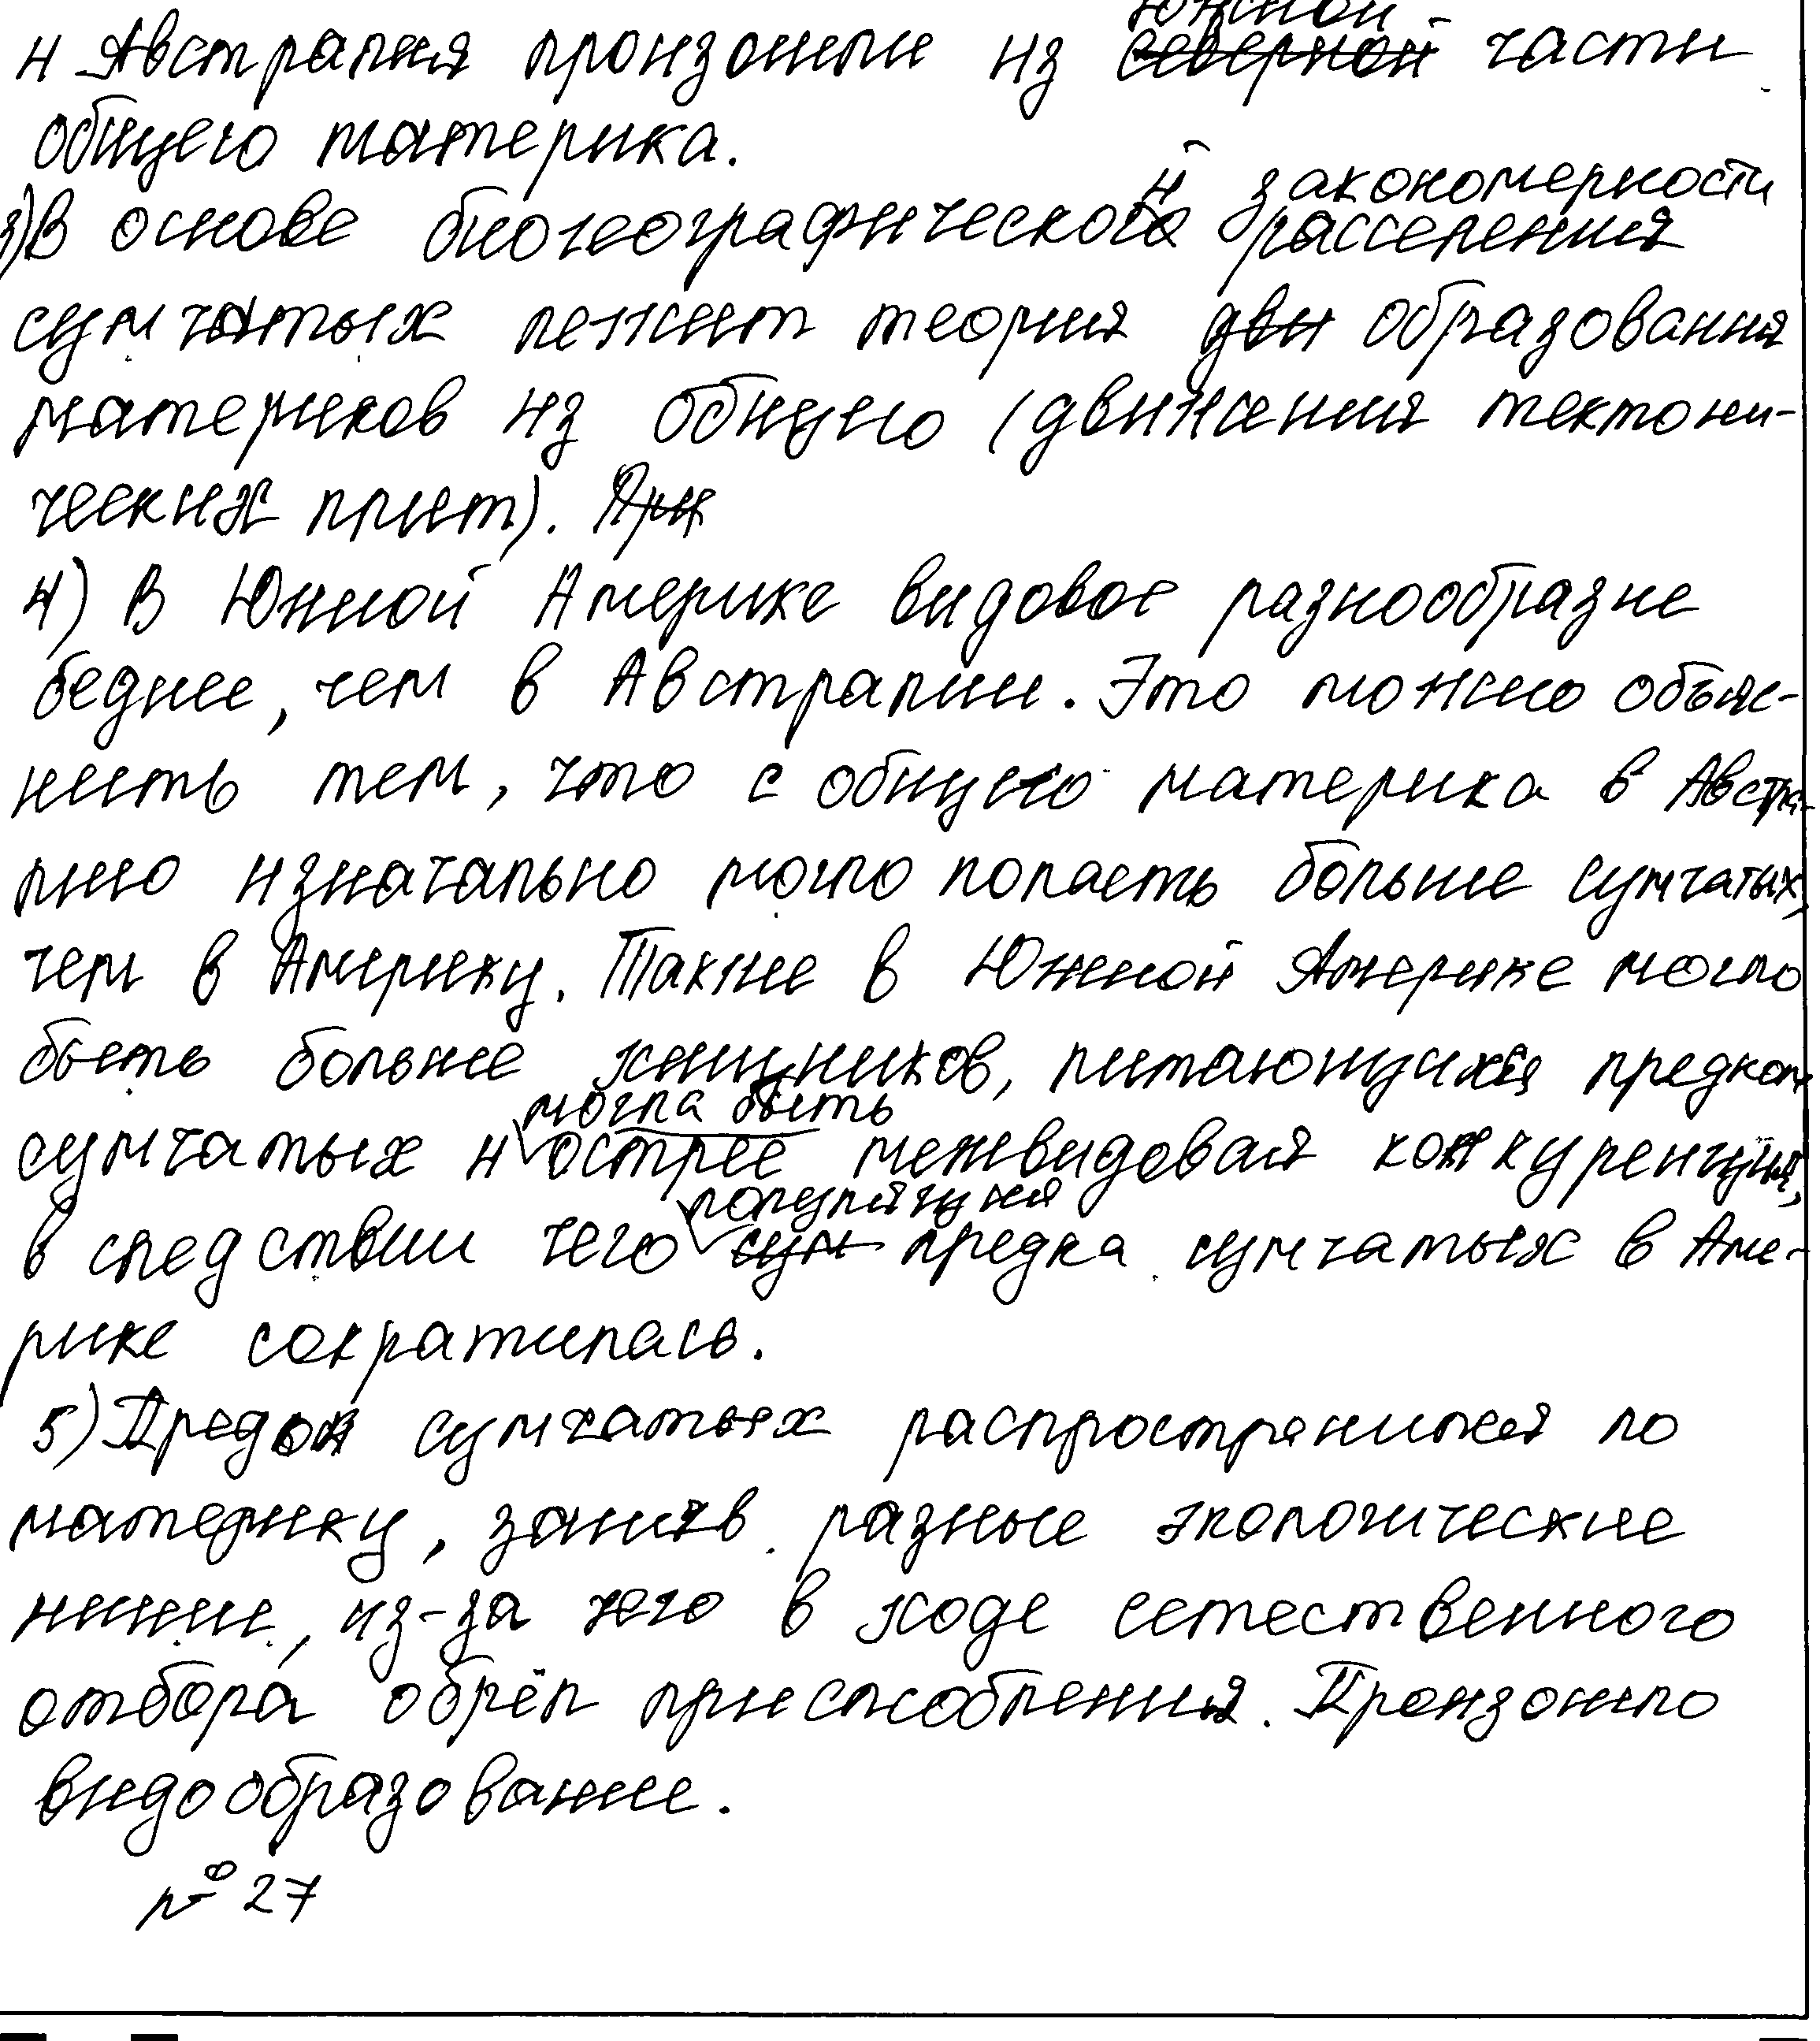 южной
и Австралия произошли из северной части
общего материка.
3) В основе биогеографической закономерности
расселения
сумчатых лежит теория дви образования
материков из общего (движения тектони-
ческих плит). При
4) В Южной Америке видовое разнообразие
беднее, чем в Австралии. Это можно объяс-
нить тем, что с общего материка в Австра-
лию изначально могло попасть больше сумчатых,
чем в Америку. Также в Южной Америке могло
быть больше хищников, питающихся предком
могла быть
сумчатых и острее межвидовая конкуренция,
популяция
в следствии чего сум предка сумчатых в Аме-
рике сократилась.
5) Предок сумчатых распространился по
материку, заняв разные экологические
ниши, из-за чего в ходе естественного
отбора обрёл приспособления. Произошло
видообразование.
№ 27